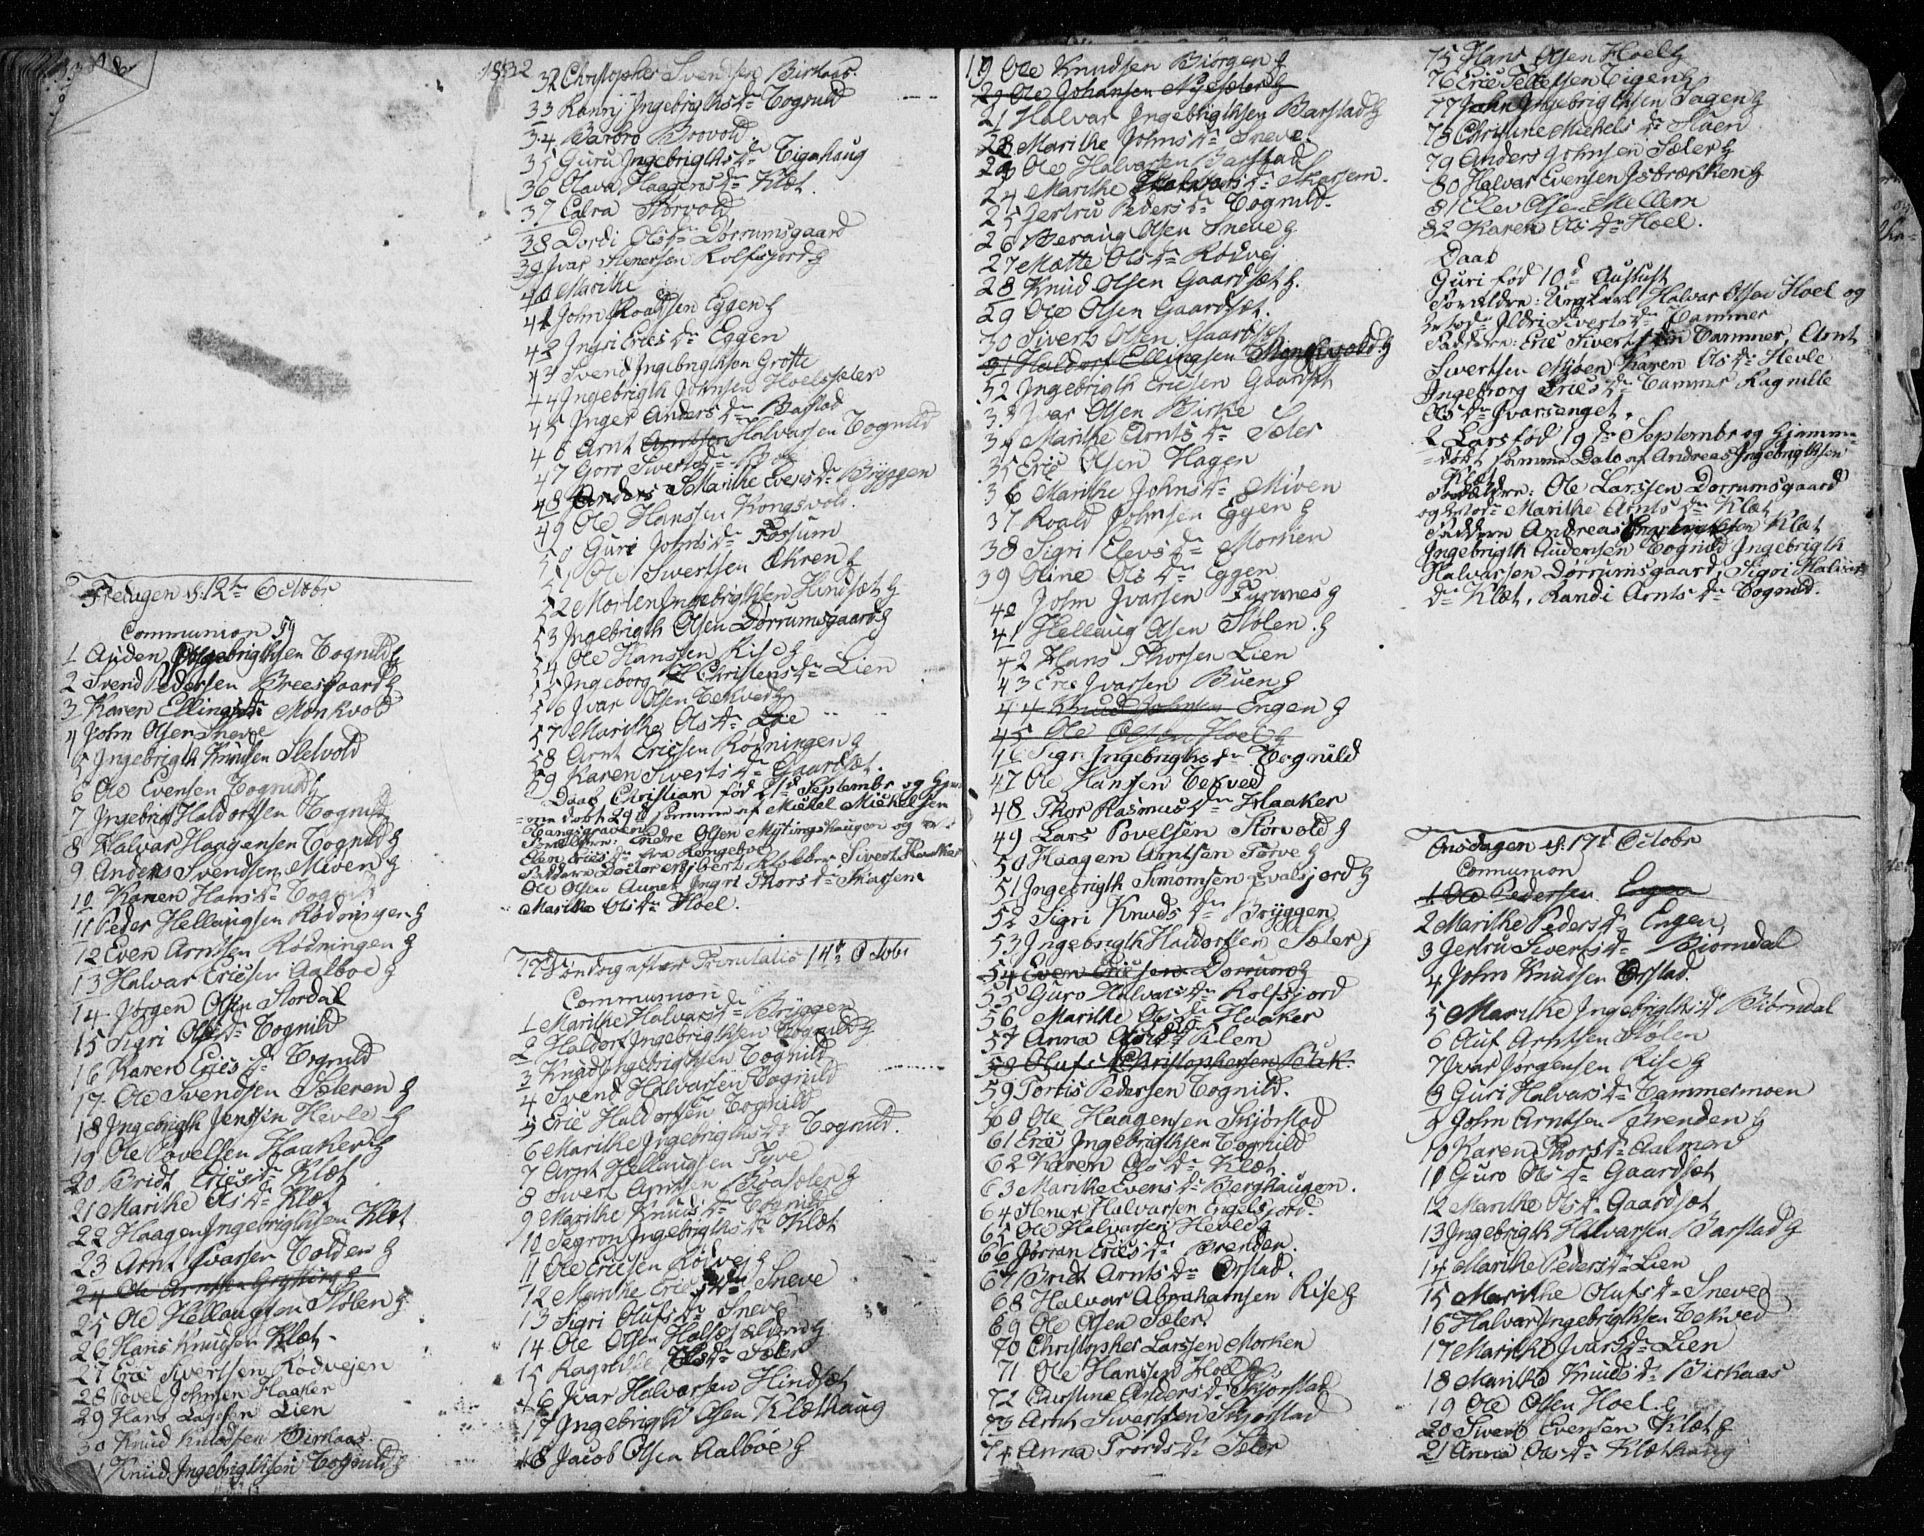 1832
Fredagen d: 12te Octobr
Communion 59
1 Auden Ingebrigthsen Tognild
2 Svend Pedersen Breesgaard
3 Karen Ellings Dr Monkvold
4 John Olsen Sneve
5 Ingebrigth Knudsen Sletvold
6 Ole Evensen Tognild
7 Ingebrigth Haldorssen Tognild
8 Halvar Haagensen Tognild
9 Anders Svendsen Miven
10 Karen Hans Dr Tognild
11 Peder Hellaugsen Rødningen
12 Even Arntsen Rødningen
13 Halvar Ericsen Aalboe
14 Jørgen Olsen Stordal
15 Sigri Ols Dr Tognild
16 Karen Erics Dr Tognild
17 Ole Svendsen Sæteren
18 Ingebrigth Jenssen Hevle
19 Ole Povelsen Haaker
20 Bridt Erics Dr Klæt
21 Marithe Ols Dr Klæt
22 Haagen Ingebrigthsen Klæt
23 Arnt Ivarsen Tolden
24 Ole Arntsen
25 Ole Hellaugsen Stølen
26 Hans Knudsen Klæt
27 Eric Sivertsen Rødvejen
28 Povel Johnsen Haaker
29 Hans Larssen Lien
30 Knud Knudsen Birkaas
31 Knud Ingebrigthsen Tognild
32 Christopher Svendsen Birkaas
33 Ranni Ingebrigths Dr Tognild
34 Barbro Broevold
35 Guru Ingebrigths Dr Tigahaug
36 Olava Haagens Dr Klæt
37 Storvold
38 Dordi Ols Dr Dørrumsgaard
39 Ivar Stenersen Rolfsjord
40 Marithe
41 John Roaldsen Eggen
42 Ingri Erics Dr Eggen
43 Svend Ingebrigthsen Grøtte
44 Ingebrigth Johnsen Hoelssæter
45 Inger Anders Dr Barstad
46 Arnt Halvarsen Tognild
47 Goro Siverts Dr
48 Marithe Evens Dr Bryggen
49 Ole Hanssen Kongsvold
50 Guri Johns Dr Fossum
51 Ole Sivertsen Ekren
52 Morten Ingebrigthsen Hindsæt
53 Ingebrigth Olsen Dørrumsgaard
54 Ole Hanssen Rise
55 Ingeborg Christens Dr Lien
56 Ivar Olsen Tekved
57 Marithe Ols Dr
58 Arnt Ericsen Rødningen
59 Karen Siverts Dr Gaardsæt
Daab Christian fød 21de Septembr og Hjem-
me døbt 29de samme af Mickel Mickelsen
Vangsgraven
Forældre: Endre Olsen Mytingshaugen og
Elen Erics Dr fra Ringeboe
Faddere Doctor Sivert Haaker
Ole Olsen Aunet Ingri Thors Dr Skarsem
Marithe Ols Dr Hoel
17de Søndag efter Trinitatis 14de Octobr
Communion
1 Marithe Halvars Dr Bryggen
2 Haldor Ingebrigthsen Tognild
3 Knud Ingebrigthsen Tognild
4 Svend Halvarsen Tognild
5 Eric Haldorssen Tognild
6 Marithe Ingebrigths Dr Tognild
7 Arnt Hellaugsen Tove
8 Sivert Arntsen Boasæter
9 Marithe Knuds Dr Tognild
10 Segron Ingebrigths Dr Klæt
11 Ole Ericsen Rødvej
12 Marithe Erics Dr Sneve
13 Sigri Olufs Dr Sneve
14 Ole Olsen
15 Ragnhilde Ols Dr Sæter
16 Ivar Halvarsen Hindsæt
17 Ingebrigth Olsen Klæthaug
18 Jacob Olsen Aalboe
19 Ole Knudsen Biørgen
20 Ole Johansen Nysæter
21 Halvar Ingebrigthsen Barstad
22 Marithe Johns Dr Sneve
23 Ole Halvarsen Barstad
24 Marithe Halvars Dr Skarsem
25 Jertru Peders Dr Tognild
26 Beraug Olsen Sneve
27 Matte Ols Dr Rødvej
28 Knud Olsen Gaardsæt
29 Ole Olsen Gaardsæt
30 Sivert Olsen Gaardsæt
31 Haldor Ellingsen
32 Ingebrigth Ericsen Gaardsæt
33 Ivar Olsen Birke
34 Marithe Arnts Dr Sæter
35 Eric Olsen Hagen
36 Marithe Johns Dr Miven
37 Roald Johnsen Eggen
38 Sigri Elevs Dr Morken
39 Oline Ols Dr Eggen
40 John Ivarsen Furunes
41 Hellaug Olsen Stølen
42 Hans Thorsen Lien
43 Eric Ivarsen Buen
44 Knud Johnsen Engen
45 Ole Olsen Hoel
46 Sigri Ingebrigths Dr Tognild
47 Ole Hansen Tekved
48 Thor Rasmus Dr Haaker
49 Lars Povelsen Storvold
50 Haagen Arntsen Torve
51 Ingebrigth Simonsen Hvalsjord
52 Sigri Knuds Dr Bryggen
53 Ingebrigth Haldorssen Sæter
54 Even Ericsen Dørrum
55 Guro Halvars Dr Rolfsjord
56 Marithe Ols Dr Haaker
57 Anna Ols Dr Flem
58 Oluf Christophersen Bæk
59 Tortis Pedersen Tognild
60 Ole Haagensen Skjørstad
61 Eric Ingebrigthsen Tognild
62 Karen Ols Dr Klæt
63 Marithe Evens Dr Berghaugen
64 Stener Halvarsen Engelsjord
65 Ole Halvarsen Heved
66 Jorran Erics Dr Brenden
67 Bridt Arnts Dr Ørstad
68 Halvar Abrahamsen Rise
69 Ole Olsen Sæter
70 Christopher Larssen Morken
71 Ole Hanssen Hoel
72 Christine Anders Dr Skjørstad
73 Arnt Sivertsen Skjørstad
74 Anna Trords Dr Sæter
75 Hans Olsen Hoel
76 Eric Pedersen Tigen
77 John Ingebrigthsen Hagen
78 Christine Michels Dr Stuen
79 Anders Johnsen Sæter
80 Halvar Evensen Isbrækken
81 Elev Olsen Mellem
82 Karen Ols Dr Hoel
Daab
Guri fød 10de August
Forældre: Ungkarl Halvar Olsen Hoel og
Ildri Siverts Dr Tammer
Faddere: Eric Sivertsen Tammer, Arnt
Sivertsen Myøen Karen Ols Dr Hevle
Ingeborg Erics Dr Tammer Ragnille
Ols Dr Ivarsenget
2 Lars fød 19de Septembr og Hjemme-
døbt samme Dato af Andreas Ingebrigthsen
Klæt
Forældre: Ole Larssen Dørrumsgaard
og Marithe Arnts Dr Klæt
Faddere Andreas Ingebrigthsen Klæt
Ingebrigth Audensen Tognild Ingebrigth
Halvarsen Dørrumsgaard, Sigri Halvars
Dr Klæt, Randi Arnts Dr Tognild
Onsdagen d: 17de Octobr
Communion
1 Ole Pedersen Engen
2 Marithe Peders Dr Engen
3 Jertru Siverts Dr Biørndal
4 John Knudsen Ørstad
5 Marithe Ingebrigths Dr Biørndal
6 Auf Arntsen Stølen
7 Ivar Jørgensen Rise
8 Guri Halvars Dr Tammesmoen
9 John Arntsen Brenden
10 Karen Thors Dr Aalmen
11 Guro Ols Dr Gaardsæt
12 Marithe Ols Dr Gaardsæt
13 Ingebrigth Halvarsen Barstad
14 Marithe Peders Dr Lien
15 Marithe Olufs Dr Sneve
16 Halvar Ingebrigthsen Tekved
17 Marithe Ivars Dr Lien
18 Marithe Knuds Dr Birkaas
19 Ole Olsen Hoel
20 Sivert Evensen Klæt
21 Anna Ols Dr Klæthaug